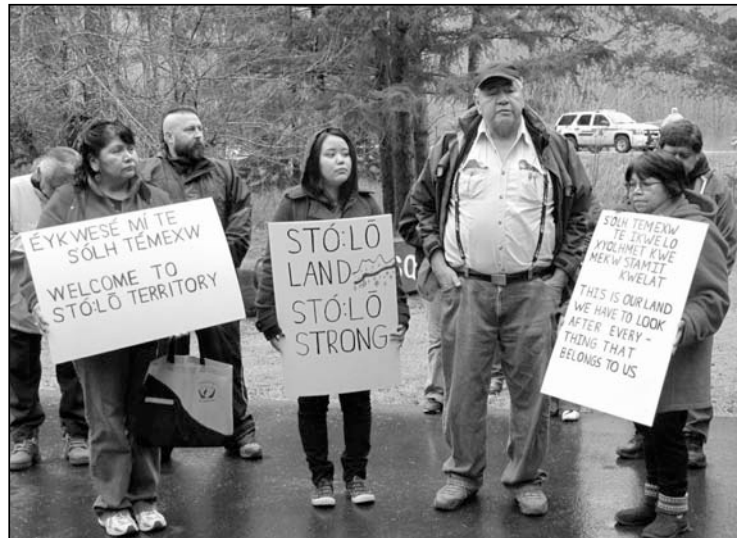 ÉYKWESÉ MÍ TE
SÓLH TÉMEXW
WELCOME TO
STÓ:LŌ TERRITORY
STÓ:LŌ
LAND
STÓ:LŌ
STRONG
SÓLH TEMEXW
TE IKWELO
XYOLHMET KWE
MEKW STAMIT
KWELAT
THIS IS OUR LAND
WE HAVE TO LOOK
AFTER EVERY-
THING THAT
BELONGS TO US